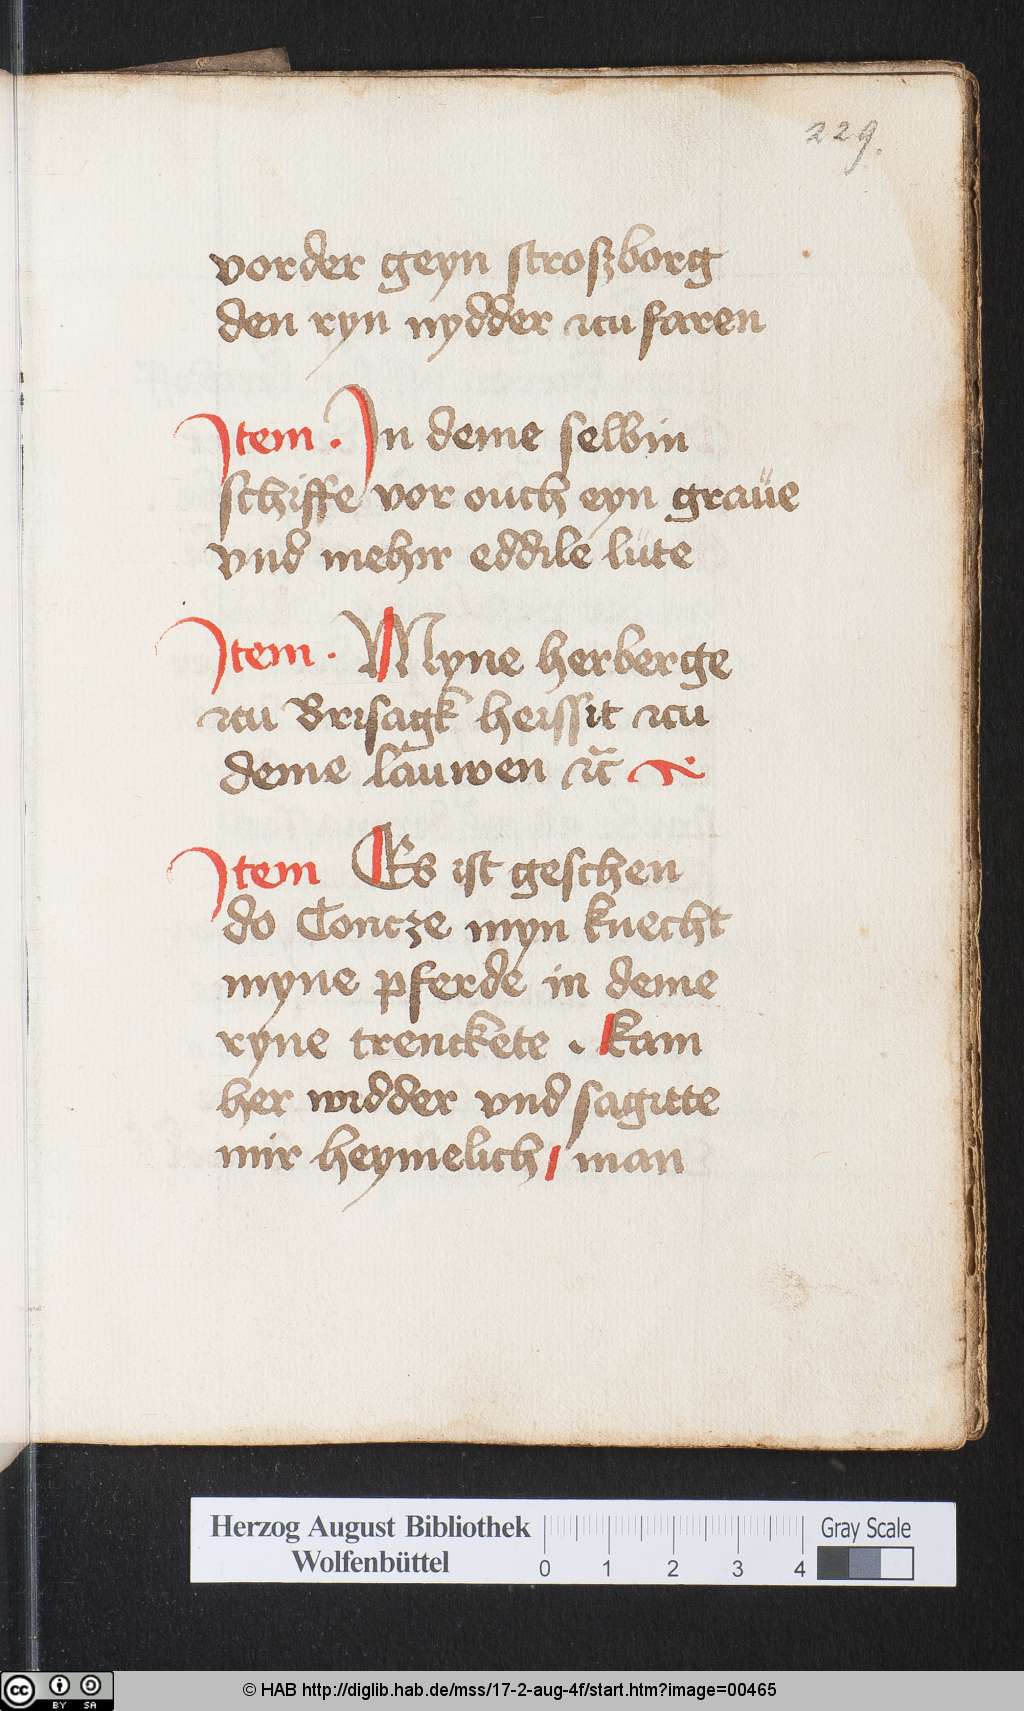 229.
vorder geyn stroszborg
den ryn nydder zcu faren
Item . In deme selbin
schiffe vor ouch eyn graüe
vnd mehir eddile lüte
Item . Myne herberge
zcu Brisagk heissit zcu
deme lauwen zc̄
Item Es ist geschen
do Contze myn knecht
myne pferde in deme
ryne trenckete . kam
her widder vnd sagitte
mir heymelich / man
Herzog August Bibliothek
Wolfenbüttel
0 1 2 3 4
Gray Scale
cc BY SA
© HAB http://diglib.hab.de/mss/17-2-aug-4f/start.htm?image=00465